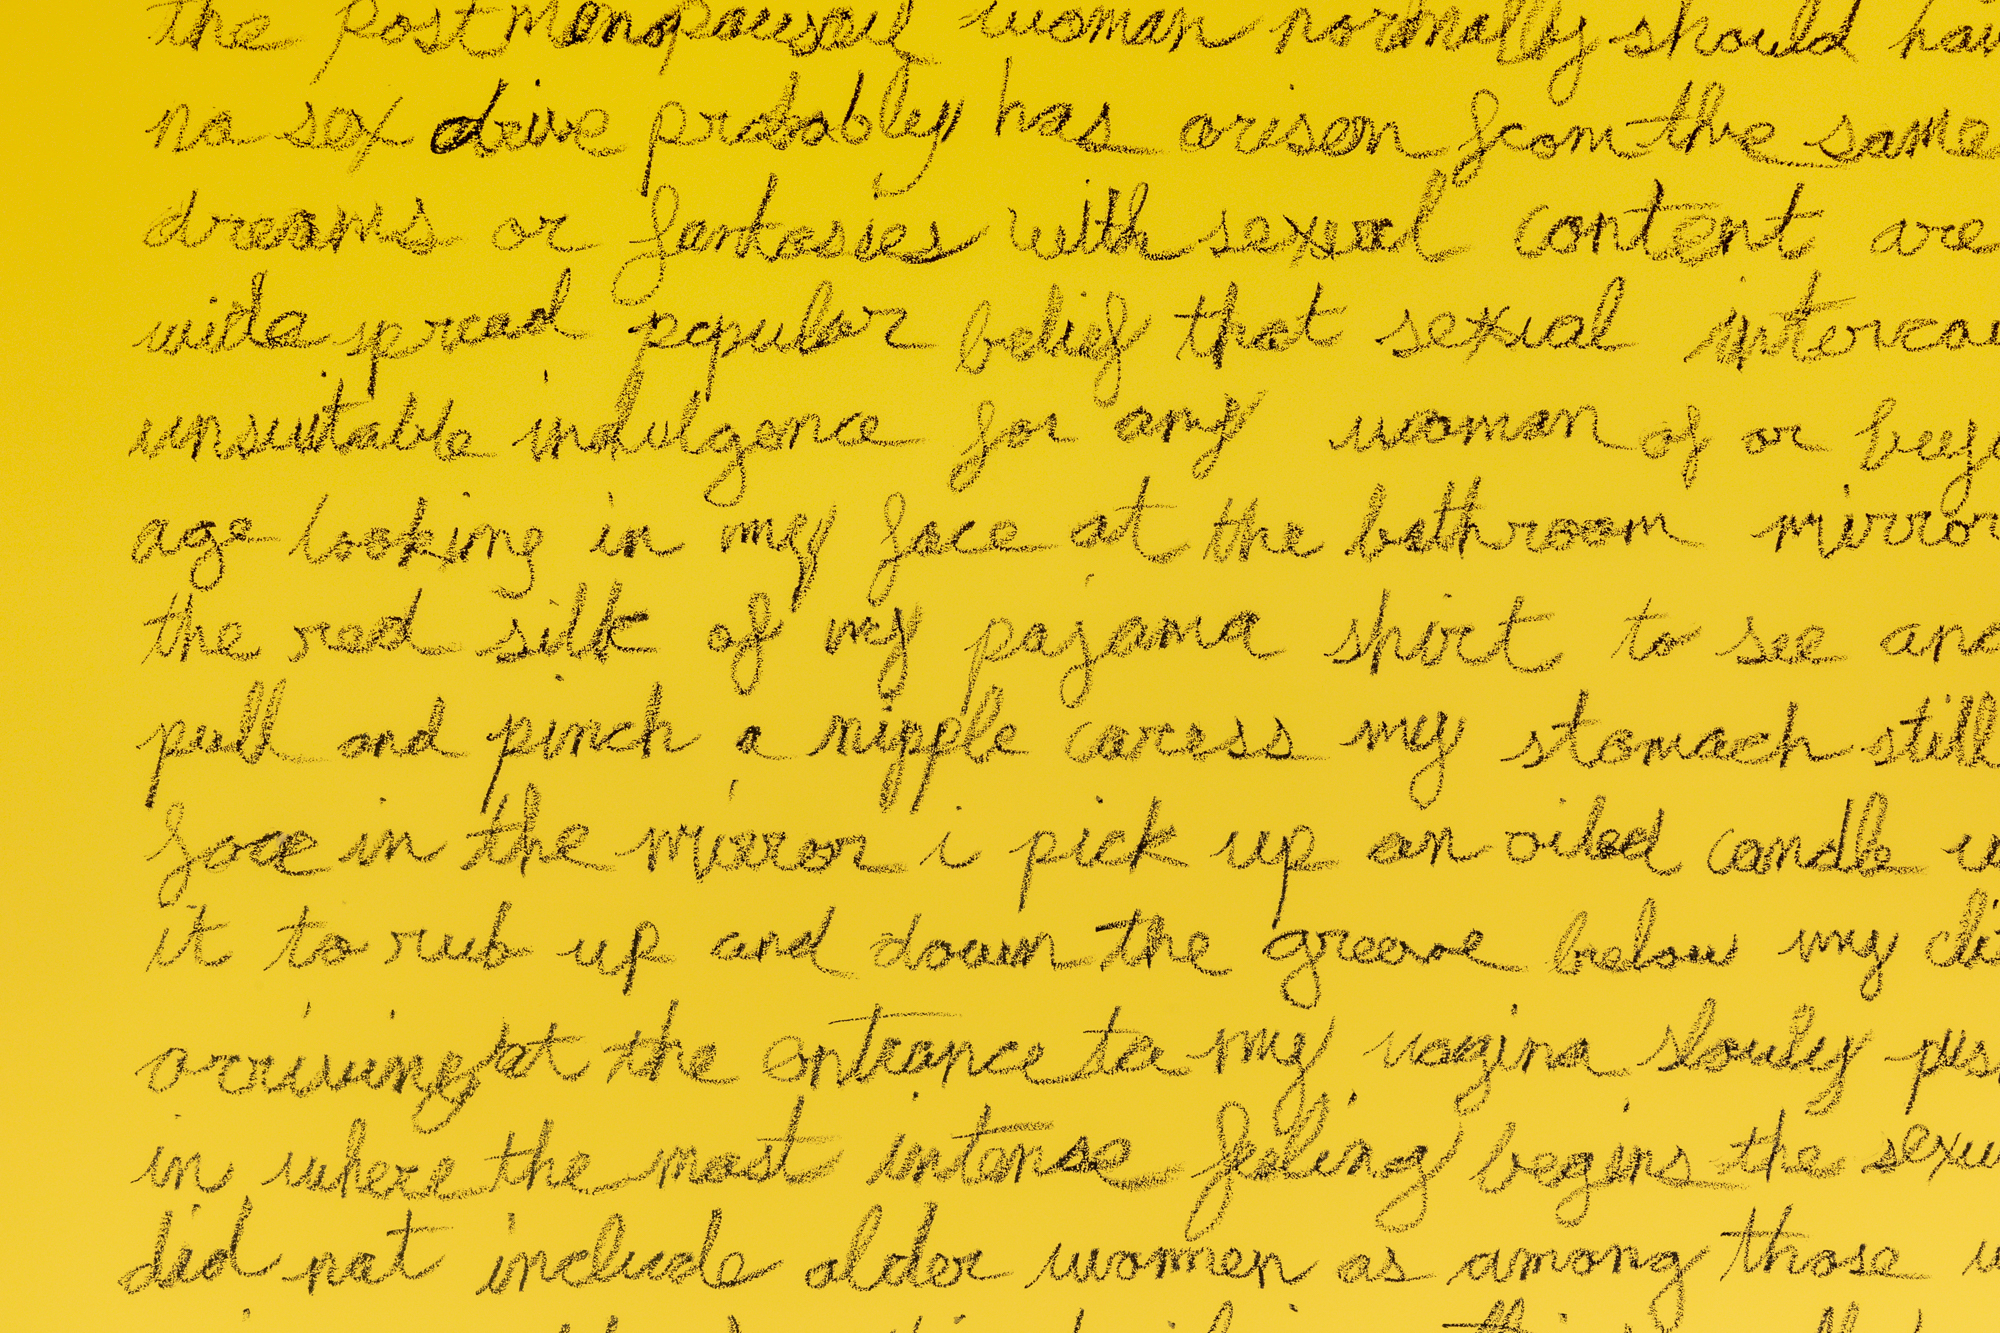 the postmenopausal woman normally should hav
no sex drive probably has arisen from the same
dreams or fantasies with sexual content are
wide spread popular belief that sexual intercou
unsuitable indulgence for any woman of or beyo
age looking in my face at the bathroom mirror
the red silk of my pajama shirt to see and
pull and pinch a nipple caress my stomach still
face in the mirror i pick up an oiled candle
it to rub up and down the groove below my clit
arriving at the entrance to my vagina slowly pus
in where the most intense feeling begins the sexu
did not include older women as among those